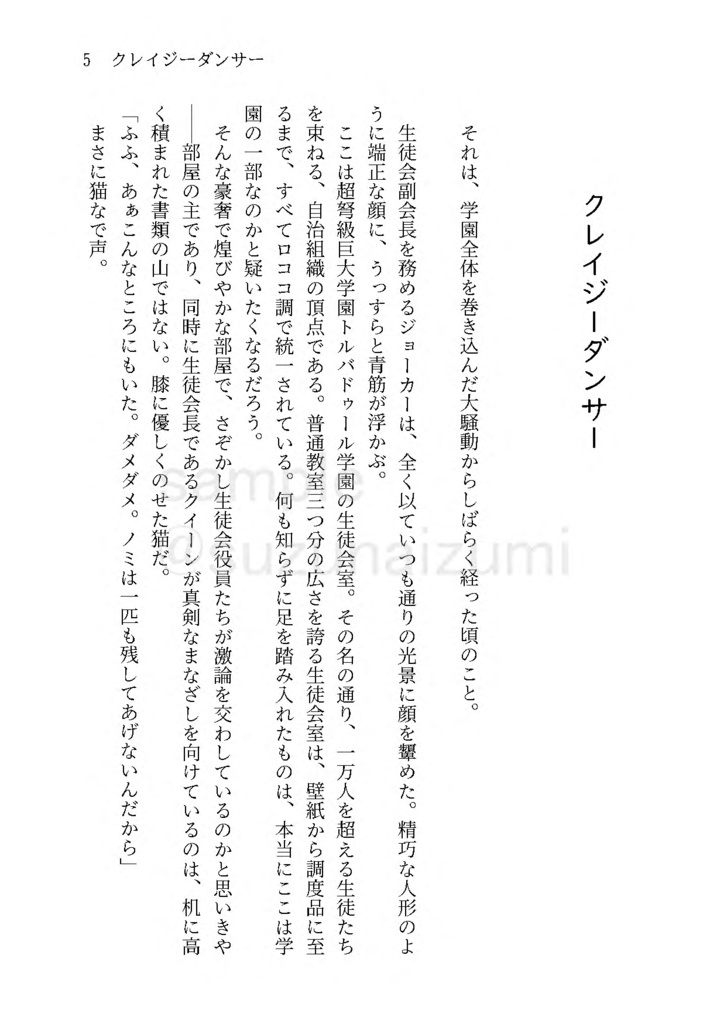 5 クレイジーダンサー
クレイジーダンサー
それは、学園全体を巻き込んだ大騒動からしばらく経った頃のこと。
生徒会副会長を務めるジョーカーは、全く以ていつも通りの光景に顔を顰めた。精巧な人形のよ
うに端正な顔に、うっすらと青筋が浮かぶ。
ここは超弩級巨大学園トルバドゥール学園の生徒会室。その名の通り、一万人を超える生徒たち
を束ねる、自治組織の頂点である。普通教室三つ分の広さを誇る生徒会室は、壁紙から調度品に至
るまで、すべてロココ調で統一されている。何も知らずに足を踏み入れたものは、本当にここは学
園の一部なのかと疑いたくなるだろう。
そんな豪奢で煌びやかな部屋で、さぞかし生徒会役員たちが激論を交わしているのかと思いきや
――部屋の主であり、同時に生徒会長であるクイーンが真剣なまなざしを向けているのは、机に高
く積まれた書類の山ではない。膝に優しくのせた猫だ。
「ふふ、あぁこんなところにもいた。ダメダメ。ノミは一匹も残してあげないんだから」
まさに猫なで声。
sample
@suzunaizumi